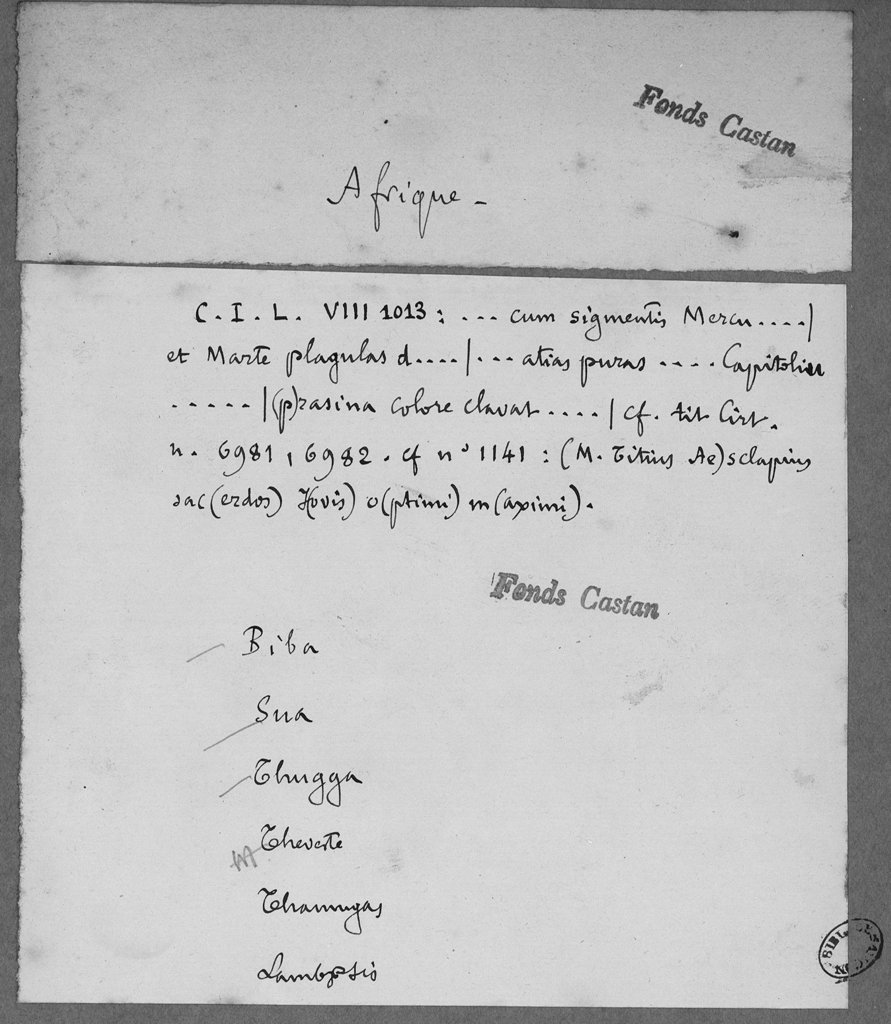 Fonds Castan
Afrique -
C. I. L. VIII 1013 : ... cum sigmentis Mercu....|
et Marte plagulas d....|... atias puras .... Capitoliu
.....|(p)rasina colore clavat ....| cf. tit Cirt.
n. 6981, 6982. cf n° 1141 : (M. Titius Ae)sclapius
sac(erdos) I(ovis) o(ptimi) m(aximi).
Fonds Castan
Biba
Sua
Thugga
Theveste
Thamugas
Lambæsis